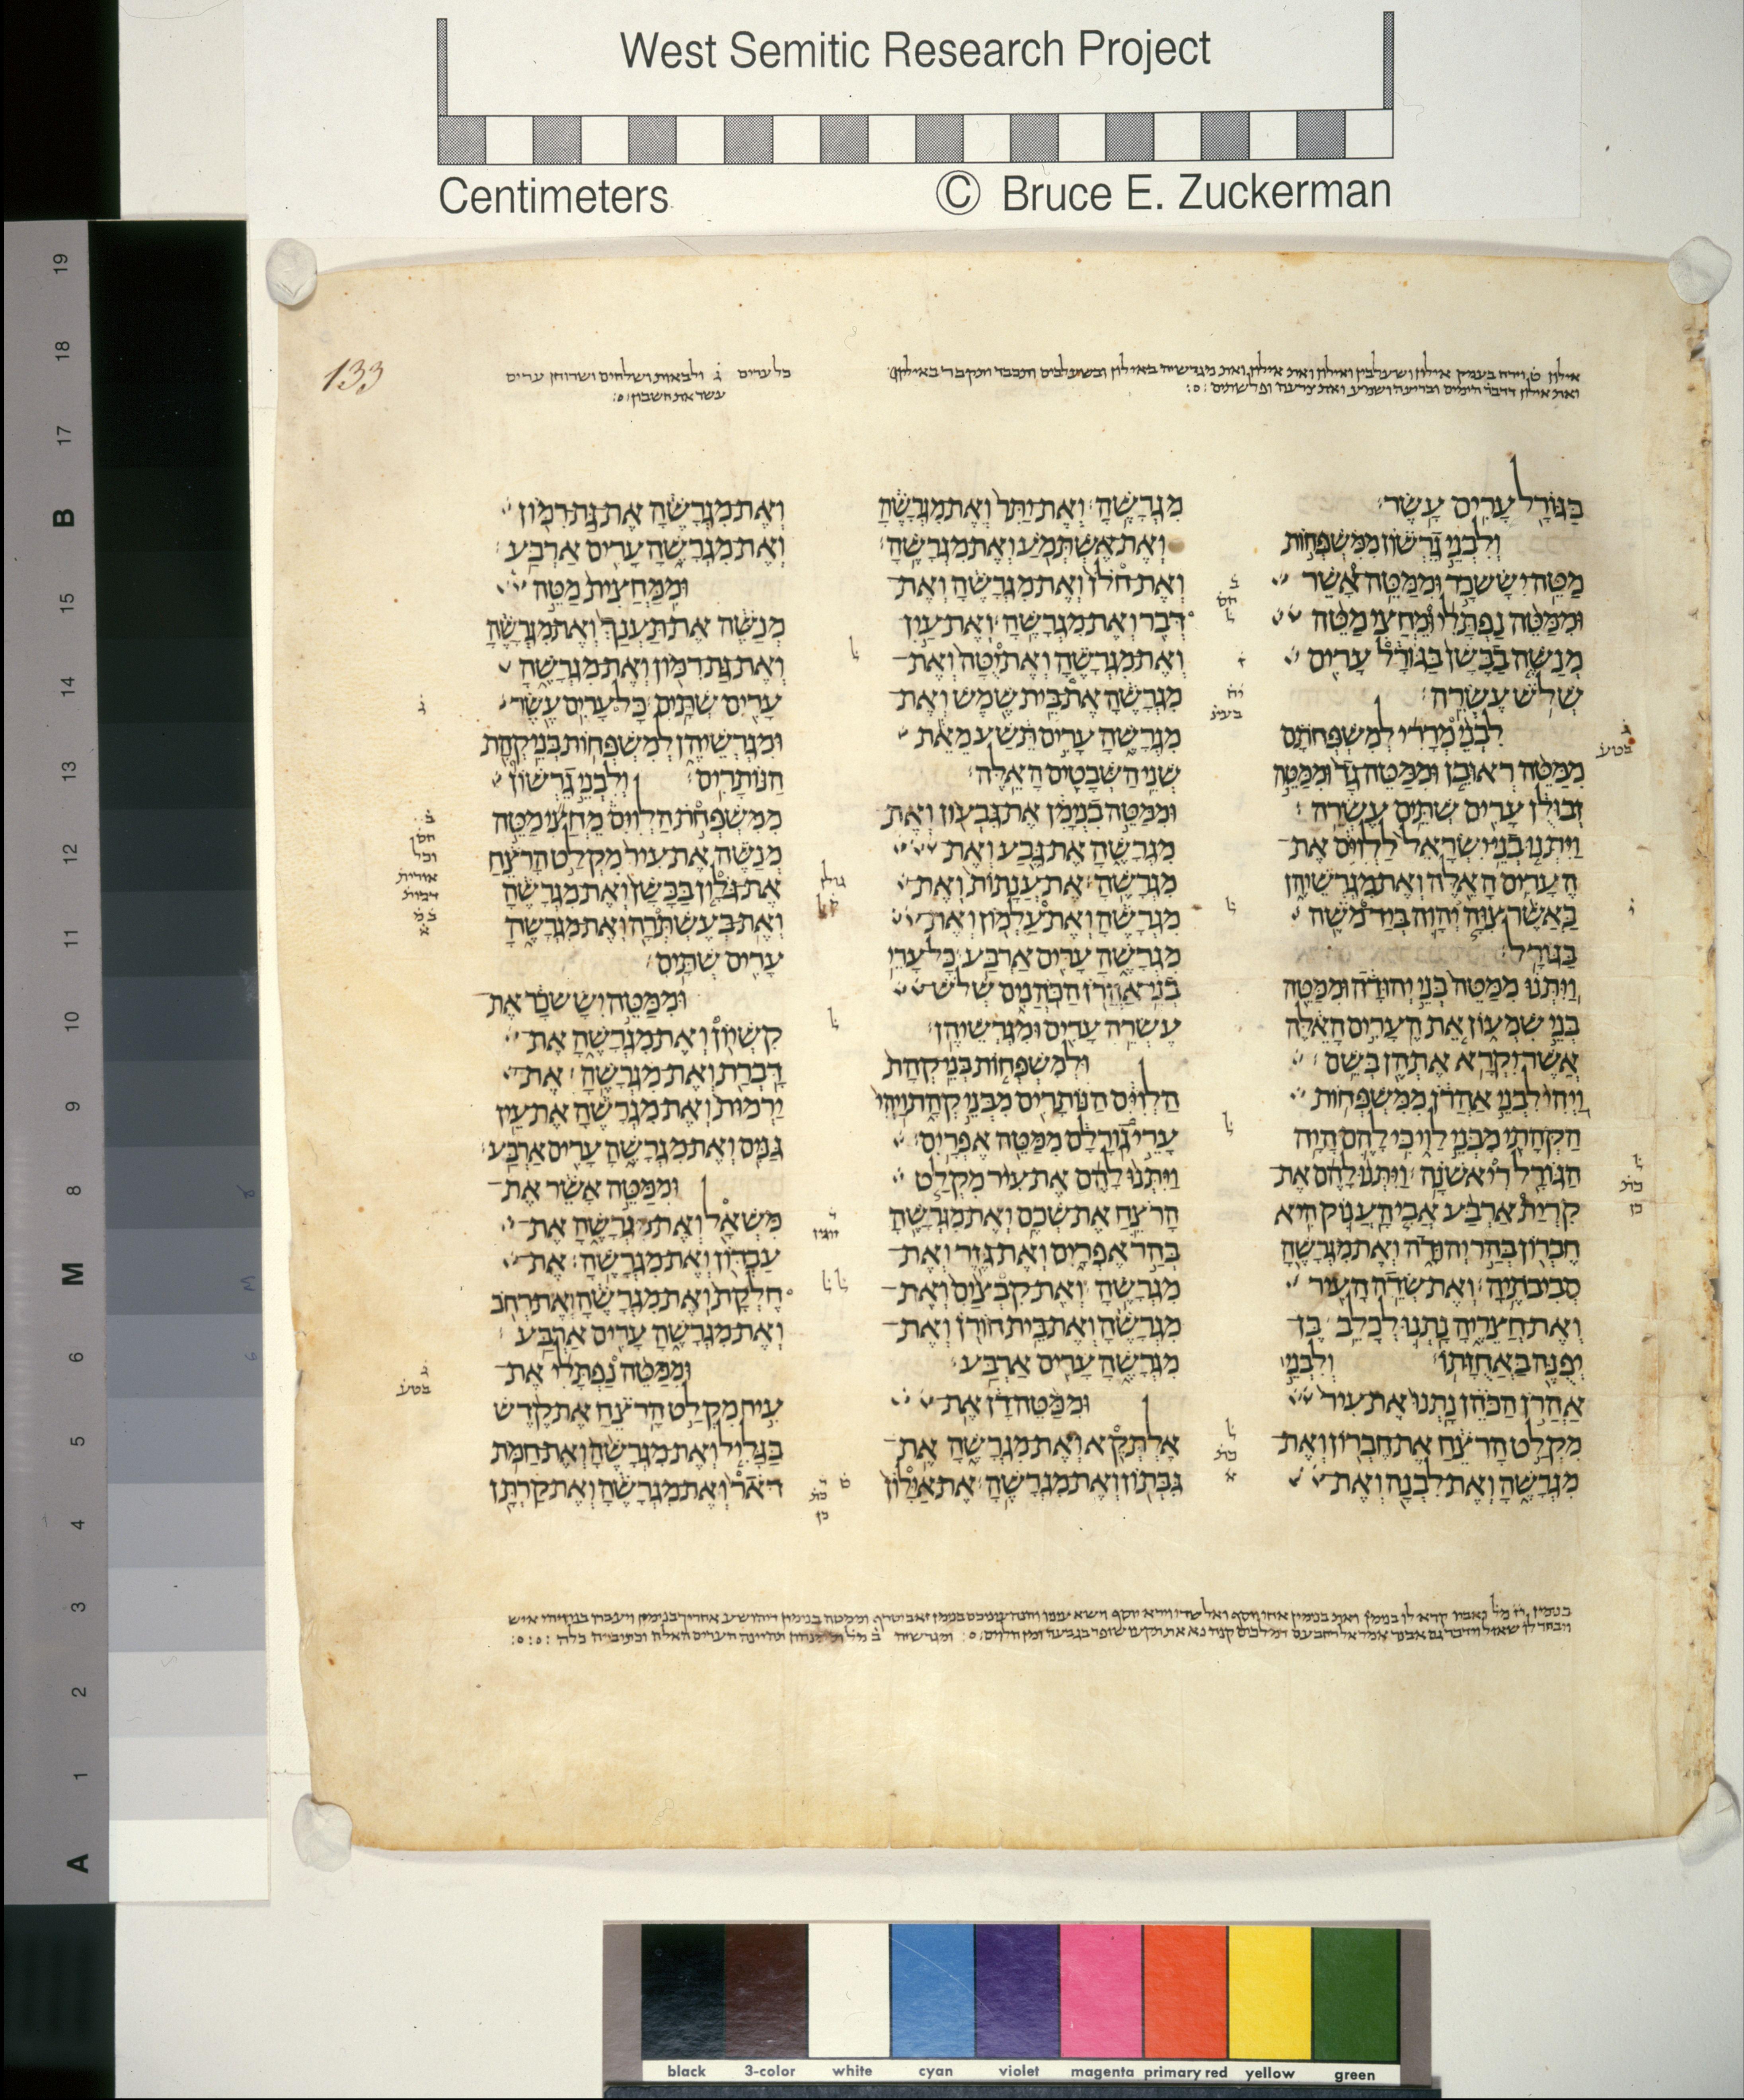 West Semitic Research Project
Centimeters © Bruce E. Zuckerman
133
בַּגּוֹרָל עָרִים עָשֶׂר׃
וְלִבְנֵי גֵרְשׁוֹן מִמִּשְׁפְּחוֹת
מַטֵּה יִשָּׂשכָר וּמִמַּטֵּה אָשֵׁר
וּמִמַּטֵּה נַפְתָּלִי וּמֵחֲצִי מַטֵּה
מְנַשֶּׁה בַבָּשָׁן בַּגּוֹרָל עָרִים
שְׁלֹשׁ עֶשְׂרֵה׃
לִבְנֵי מְרָרִי לְמִשְׁפְּחֹתָם
מִמַּטֵּה רְאוּבֵן וּמִמַּטֵּה גָד וּמִמַּטֵּה
זְבוּלֻן עָרִים שְׁתֵּים עֶשְׂרֵה׃
וַיִּתְּנוּ בְנֵי יִשְׂרָאֵל לַלְוִיִּם אֶת
הֶעָרִים הָאֵלֶּה וְאֶת מִגְרְשֵׁיהֶן
כַּאֲשֶׁר צִוָּה יְהוָה בְּיַד מֹשֶׁה
בַּגּוֹרָל׃
וַיִּתְּנוּ מִמַּטֵּה בְּנֵי יְהוּדָה וּמִמַּטֵּה
בְּנֵי שִׁמְעוֹן אֵת הֶעָרִים הָאֵלֶּה
אֲשֶׁר יִקְרָא אֶתְהֶן בְּשֵׁם
וַיְהִי לִבְנֵי אַהֲרֹן מִמִּשְׁפְּחוֹת
הַקְּהָתִי מִבְּנֵי לֵוִי כִּי לָהֶם הָיָה
הַגּוֹרָל רִיאשֹׁנָה׃ וַיִּתְּנוּ לָהֶם אֶת
קִרְיַת אַרְבַּע אֲבִי הָעֲנוֹק הִיא
חֶבְרוֹן בְּהַר יְהוּדָה וְאֶת מִגְרָשֶׁהָ
סְבִיבֹתֶיהָ׃ וְאֶת שְׂדֵה הָעִיר
וְאֶת חֲצֵרֶיהָ נָתְנוּ לְכָלֵב בֶּן
יְפֻנֶּה בַּאֲחֻזָּתוֹ׃ וְלִבְנֵי
אַהֲרֹן הַכֹּהֵן נָתְנוּ אֶת עִיר
מִקְלַט הָרֹצֵחַ אֶת חֶבְרוֹן וְאֶת
מִגְרָשֶׁהָ וְאֶת לִבְנָה וְאֶת
מִגְרָשֶׁהָ׃ וְאֶת יַתִּר וְאֶת מִגְרָשֶׁהָ
וְאֶת אֶשְׁתְּמֹעַ וְאֶת מִגְרָשֶׁהָ׃
וְאֶת חֹלֹן וְאֶת מִגְרָשֶׁהָ וְאֶת
דְּבִר וְאֶת מִגְרָשֶׁהָ׃ וְאֶת עַיִן
וְאֶת מִגְרָשֶׁהָ וְאֶת יֻטָּה וְאֶת
מִגְרָשֶׁהָ אֶת בֵּית שֶׁמֶשׁ וְאֶת
מִגְרָשֶׁהָ עָרִים תֵּשַׁע מֵאֵת
שְׁנֵי הַשְּׁבָטִים הָאֵלֶּה׃
וּמִמַּטֵּה בִנְיָמִן אֶת גִּבְעוֹן וְאֶת
מִגְרָשֶׁהָ אֶת גֶּבַע וְאֶת
מִגְרָשֶׁהָ׃ אֶת עֲנָתוֹת וְאֶת
מִגְרָשֶׁהָ וְאֶת עַלְמוֹן וְאֶת
מִגְרָשֶׁהָ עָרִים אַרְבַּע׃ כָּל עָרֵי
בְּנֵי אַהֲרֹן הַכֹּהֲנִים שְׁלֹשׁ
עֶשְׂרֵה עָרִים וּמִגְרְשֵׁיהֶן׃
וּלְמִשְׁפְּחוֹת בְּנֵי קְהָת
הַלְוִיִּם הַנּוֹתָרִים מִבְּנֵי קְהָת וַיְהִי
עָרֵי גוֹרָלָם מִמַּטֵּה אֶפְרָיִם׃
וַיִּתְּנוּ לָהֶם אֶת עִיר מִקְלַט
הָרֹצֵחַ אֶת שְׁכֶם וְאֶת מִגְרָשֶׁהָ
בְּהַר אֶפְרָיִם וְאֶת גֶּזֶר וְאֶת
מִגְרָשֶׁהָ׃ וְאֶת קִבְצַיִם וְאֶת
מִגְרָשֶׁהָ וְאֶת בֵּית חוֹרֹן וְאֶת
מִגְרָשֶׁהָ עָרִים אַרְבַּע׃
וּמִמַּטֵּה דָן אֶת
אֶלְתְּקֵא וְאֶת מִגְרָשֶׁהָ אֶת
גִּבְּתוֹן וְאֶת מִגְרָשֶׁהָ׃ אֶת אַיָּלוֹן
וְאֶת מִגְרָשֶׁהָ אֶת גַּת רִמּוֹן
וְאֶת מִגְרָשֶׁהָ עָרִים אַרְבַּע׃
וּמִמַּחֲצִית מַטֵּה
מְנַשֶּׁה אֶת תַּעְנַךְ וְאֶת מִגְרָשֶׁהָ
וְאֶת גַּת רִמּוֹן וְאֶת מִגְרָשֶׁהָ
עָרִים שְׁתָּיִם׃ כָּל עָרִים עֶשֶׂר
וּמִגְרְשֵׁיהֶן לְמִשְׁפְּחוֹת בְּנֵי קְהָת
הַנּוֹתָרִים׃ וְלִבְנֵי גֵרְשׁוֹן
מִמִּשְׁפְּחֹת הַלְוִיִּם מֵחֲצִי מַטֵּה
מְנַשֶּׁה אֶת עִיר מִקְלַט הָרֹצֵחַ
אֶת גלון בַּבָּשָׁן וְאֶת מִגְרָשֶׁהָ
וְאֶת בְּעֶשְׁתְּרָה וְאֶת מִגְרָשֶׁהָ
עָרִים שְׁתָּיִם׃
וּמִמַּטֵּה יִשָּׂשכָר אֶת
קִשְׁיוֹן וְאֶת מִגְרָשֶׁהָ אֶת
דָּבְרַת וְאֶת מִגְרָשֶׁהָ׃ אֶת
יַרְמוּת וְאֶת מִגְרָשֶׁהָ אֶת עֵין
גַּנִּים וְאֶת מִגְרָשֶׁהָ עָרִים אַרְבַּע׃
וּמִמַּטֵּה אָשֵׁר אֶת
מִשְׁאָל וְאֶת מִגְרָשֶׁהָ אֶת
עַבְדּוֹן וְאֶת מִגְרָשֶׁהָ׃ אֶת
חֶלְקָת וְאֶת מִגְרָשֶׁהָ וְאֶת רְחֹב
וְאֶת מִגְרָשֶׁהָ עָרִים אַרְבַּע׃
וּמִמַּטֵּה נַפְתָּלִי אֶת
עִיר מִקְלַט הָרֹצֵחַ אֶת קֶדֶשׁ
בַּגָּלִיל וְאֶת מִגְרָשֶׁהָ וְאֶת חַמֹּת
דֹּאר וְאֶת מִגְרָשֶׁהָ וְאֶת קַרְתָּן
19
18
17
B
16
15
14
13
12
11
10
9
8
M
7
6
5
4
3
2
1
A
black 3-color white cyan violet magenta primary red yellow green